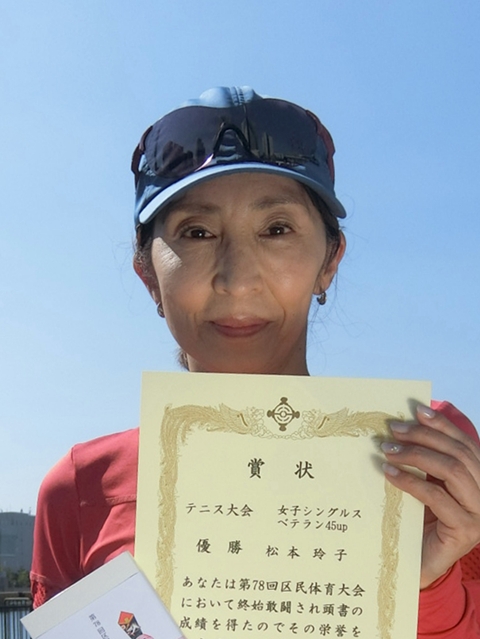 賞状
テニス大会 女子シングルス
ベテラン45up
優勝 松本 玲子
あなたは第78回区民体育大会
において終始敢闘され頭書の
成績を得たのでその栄挙を